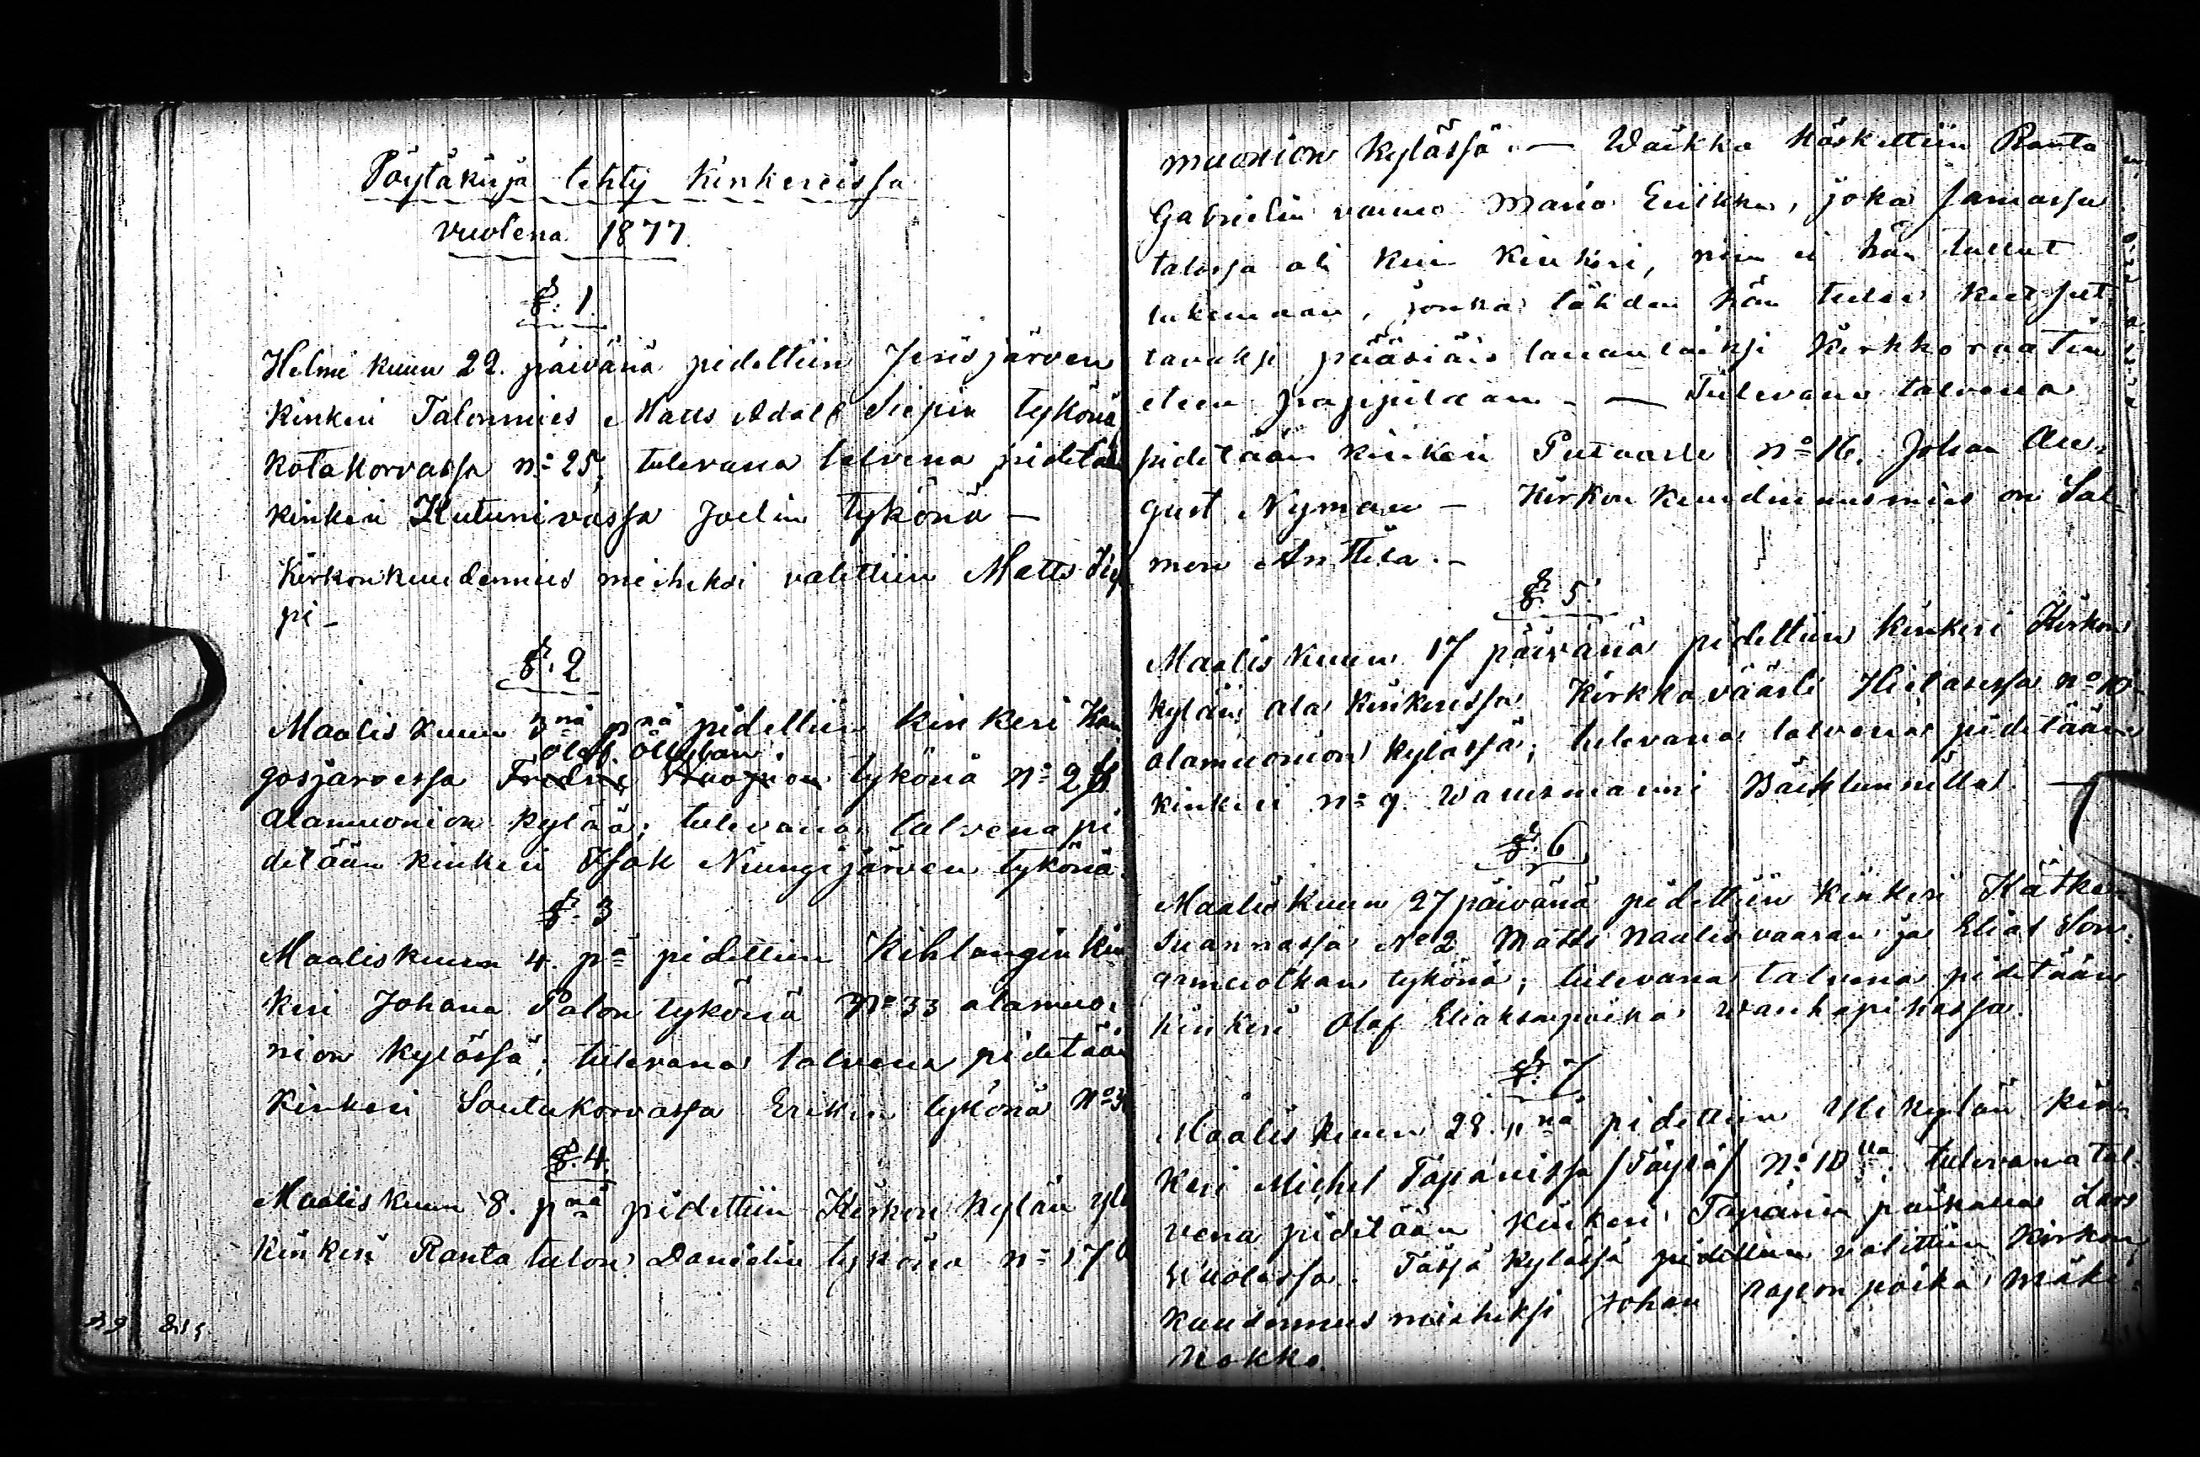 Pöytäkirja tehty kinkereissa
vuolena 1877
§. 1
Helmi kuun 22. päivänä pidettiin Jerisjärven
kinkeri Talonmies Matts Adolf Siepin tykönä
Kotakorvassa n:o 25; tulevana talvena pidetään
kinkeri Kutunivassa Joelin tykönä —
Kirkonkuudennus mieheksi valittiin Matts Sie
pi —
§. 2
Maalis kuun 3nä pnä pidettiin kinkeri Kan
Olof Ollilan
gosjärvessa tykönä N:o 2
alamuonion kylää; tulevana talvena pi
detään kinkeri Isak Niungijärven tykönä
§. 3
Maaliskuun 4. pä pidettiin Kihlangin kin
keri Johana Palon tykönä N:o 33 alamuo-
nion kylässä; tulevana talvena pidetään
kinkeri Soutukorvassa Erikin tykönä N:o
§. 4
Maalis kuun 8. pnä pidettiin Kirkon kylän yli
kinkeri Ranta talon Danielin tykönä n:o 17
muonion kylässä. — Waikka käskettiin Ranta
Gabrielin vaimo Maria Eriikka, joka samassa
talossa oli kuin kinkeri, niin ei hän tullut
lukemaan, jonka tähden hän tulee kut sut
tavaksi pääsiäis lauantaiksi Kirkkoraatin
eteen — — Tulevana talvena
pidetään kinkeri n:o 16. Johan Au-
gust Nyman — Kirkon kuudennusmies on Sal-
mon Anttila. —
§. 5.
Maalis kuun 17 päivänä pidettiin kinkeri Kirkon
kylän ala kinkerissa Kirkkoväärti Hietasessa n:o 10
alamuonion kylässä; tulevana talvena pidetään
kinkeri n:o 9. —
§. 6
Maalis kuun 27 päivänä pidettiin kinkeri Kätkä
suannassa N:o 2 Matts Naalisvaaran ja Elias Son-
garmuotkan tykönä; tulevana talvena pidetään
kinkeri Olof Eliaksenpoika Wanhapihassa.
§. 7
Maalis kuun 28. "nä pidettiin Yli kylän kin
keri Michel Tapanissa /Täyrä/ N:o 10 lla. tulevana tal-
vena pidetään kinkeri Tapanin poikana Lars
Wuolessa. Tässä kylässä pidettiin valittiin Kirkon
kuudennus mieheksi Johan poika Mäki-
Rokko.